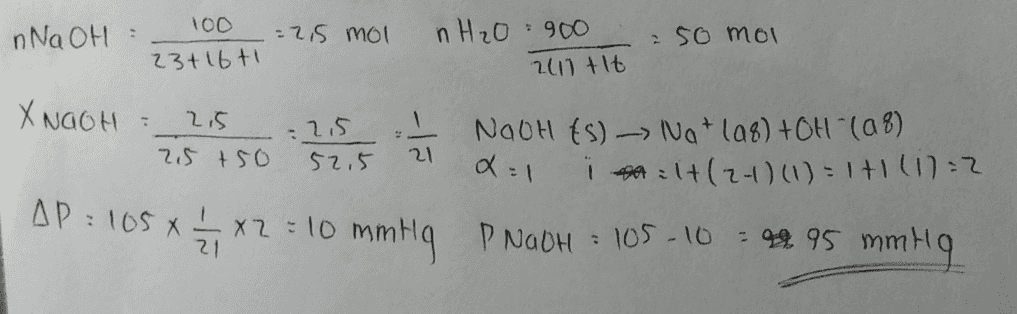 nNaOH : 100 / 23+16+1 = 2,5 mol n H2O : 900 / 2(1) +16 = 50 mol
X NaOH : 2,5 / 2,5 + 50 = 2,5 / 52,5 = 1 / 21 NaOH (s) → Na+ (aq) + OH- (aq)
α = 1 i = 1+(2-1)(1) = 1+1(1) = 2
ΔP : 105 x 1 / 21 x 2 = 10 mmHg P NaOH = 105 - 10 = 95 mmHg